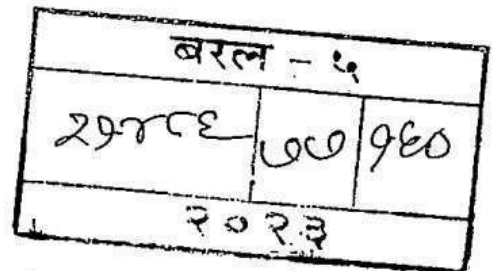 बरल - ५
२१४८६ ७७ १६०
२०२३